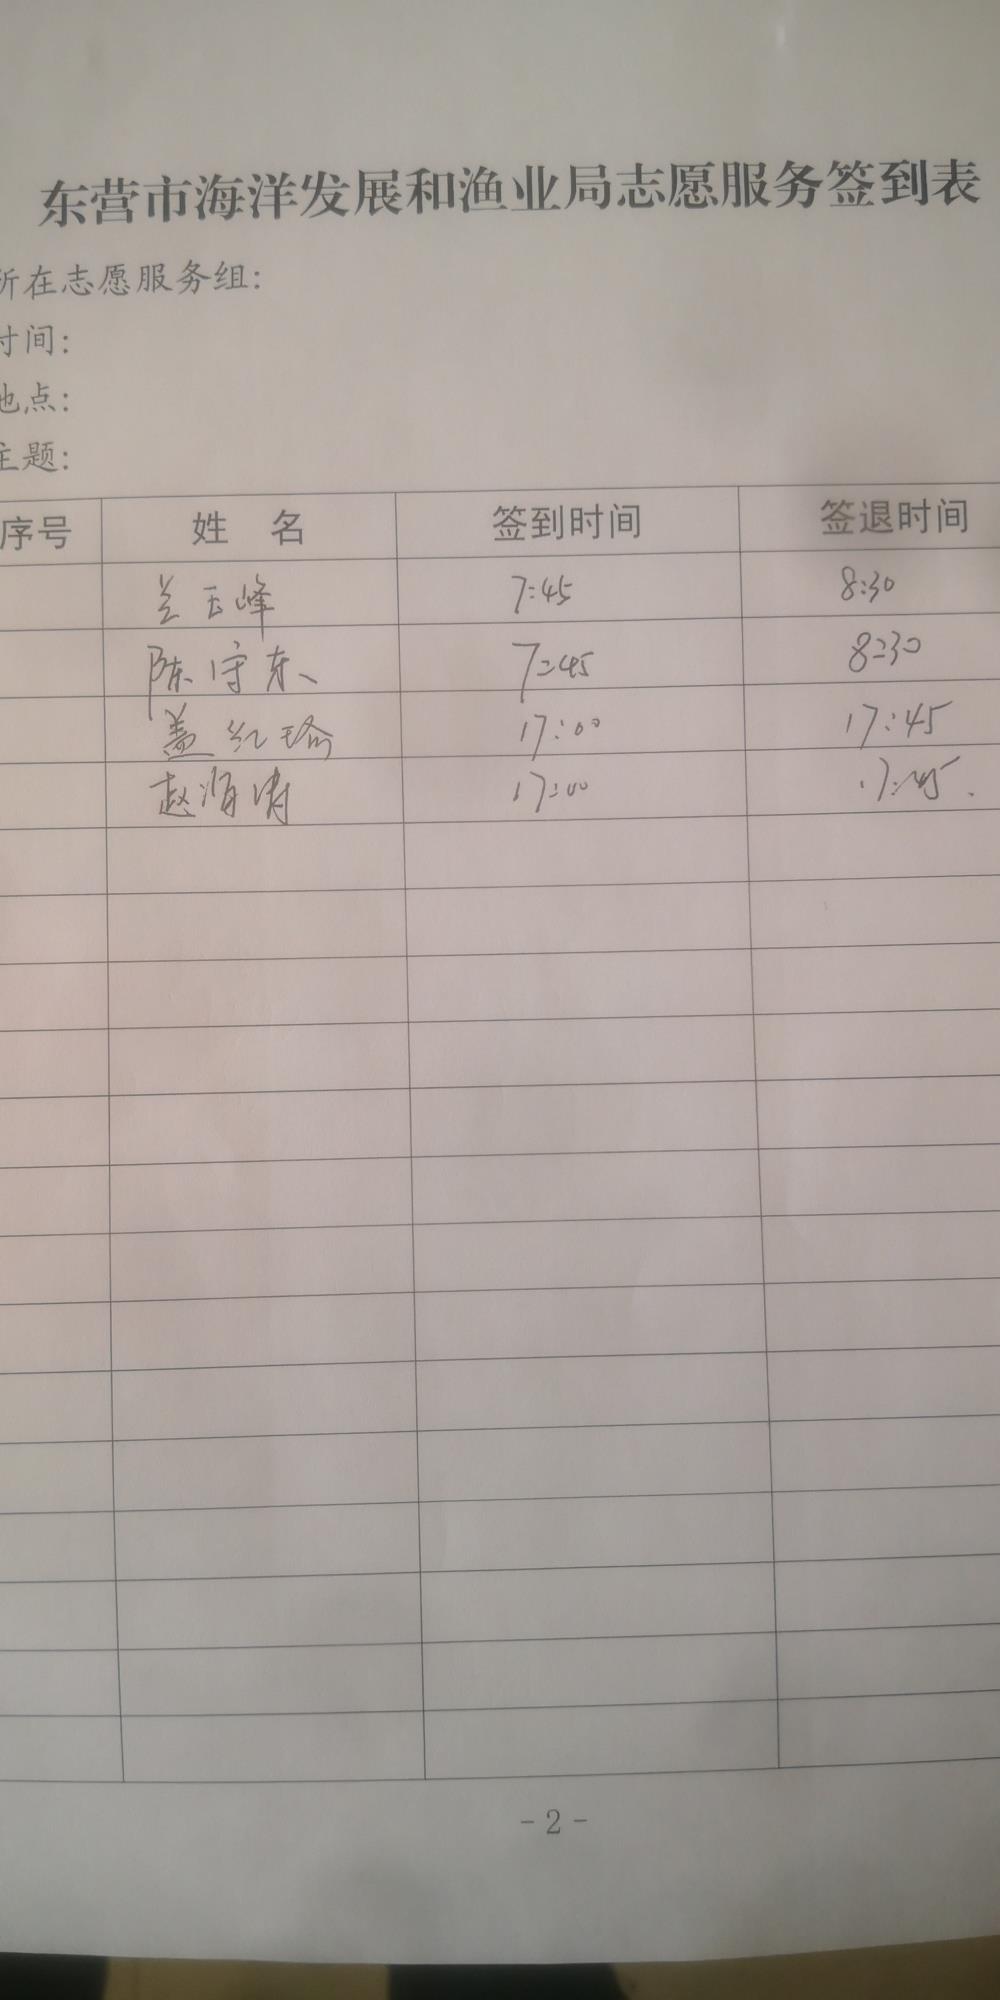 东营市海洋发展和渔业局志愿服务签到表
所在志愿服务组：
时间：
地点：
主题：
序号 姓 名 签到时间 签退时间
兰玉峰 7:45 8:30
陈守东 7:45 8:30
盖红瑜 17:00 17:45
赵海涛 17:00 17:45
- 2 -